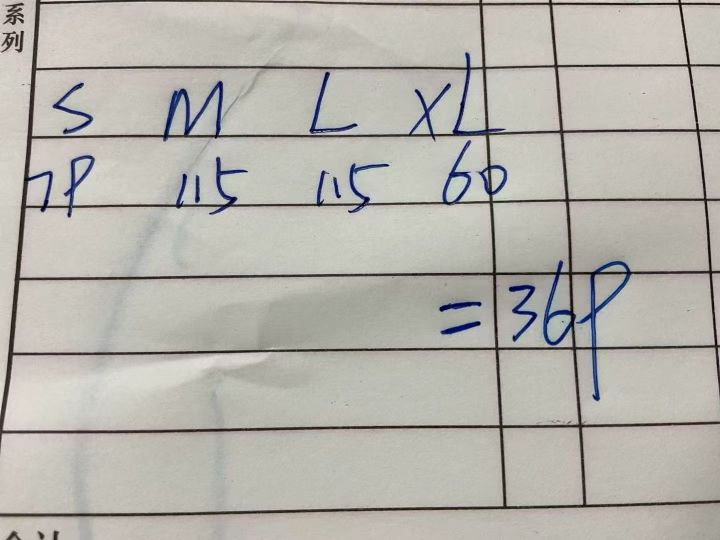 系列
S M L XL
7P 115 115 60
=36P